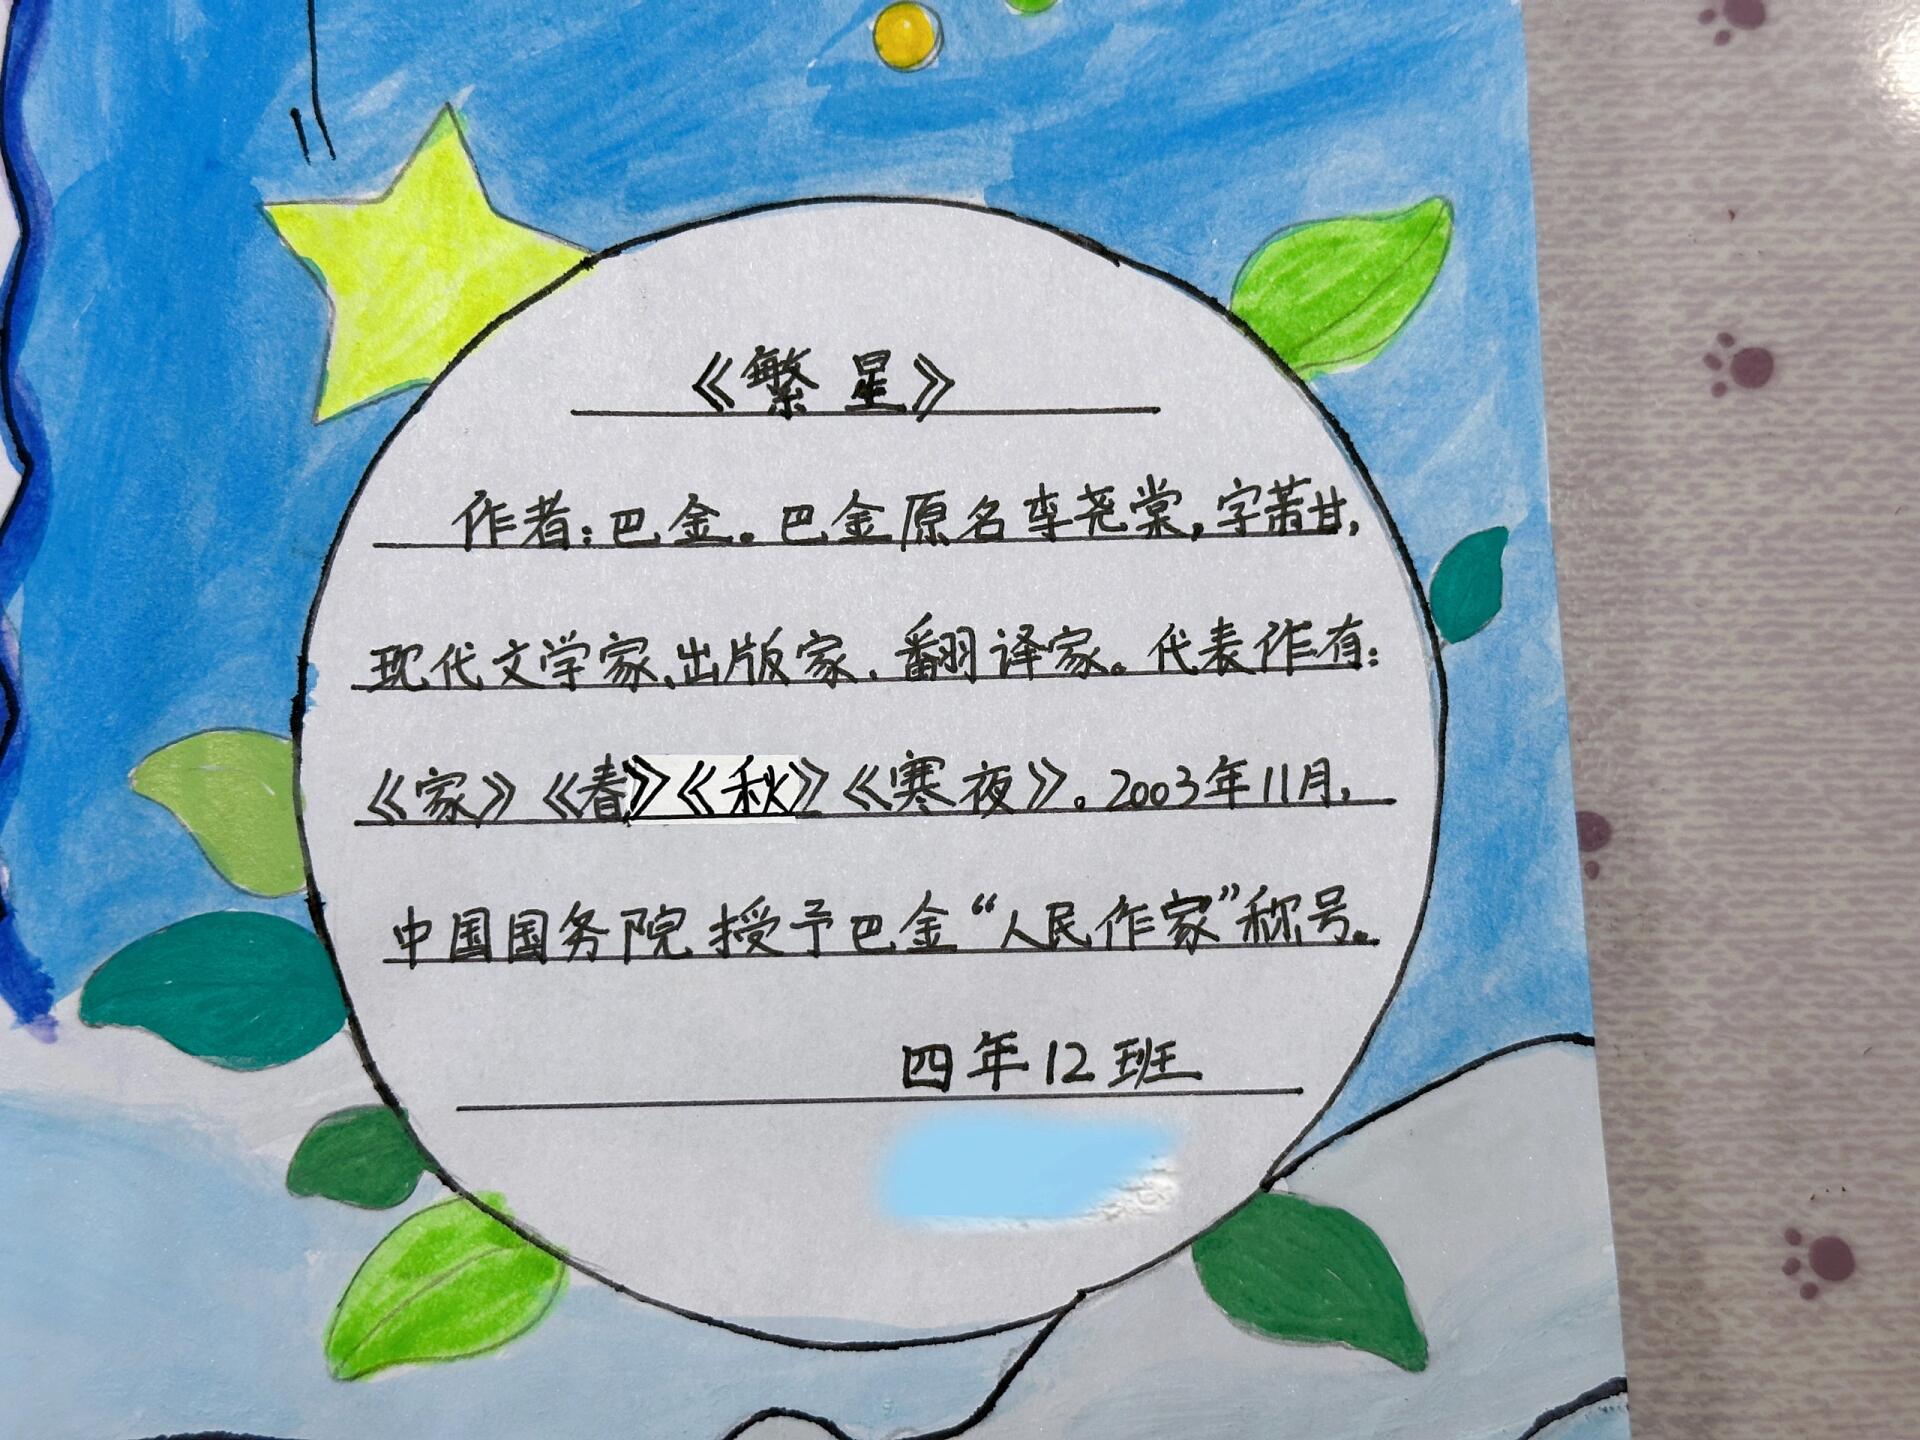 《繁星》
作者:巴金。巴金原名李尧棠,字芾甘,
现代文学家、出版家、翻译家。代表作有:
《家》《春》《秋》《寒夜》。2003年11月,
中国国务院授予巴金“人民作家”称号。
四年12班